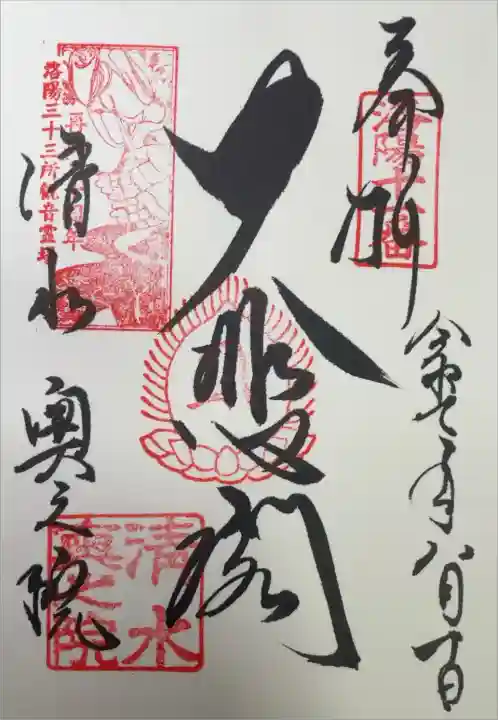 奉拝
洛陽十一番
令和七年八月十日
大悲閣
洛陽三十三所観音霊場
清水
奥之院
清水
奥之院